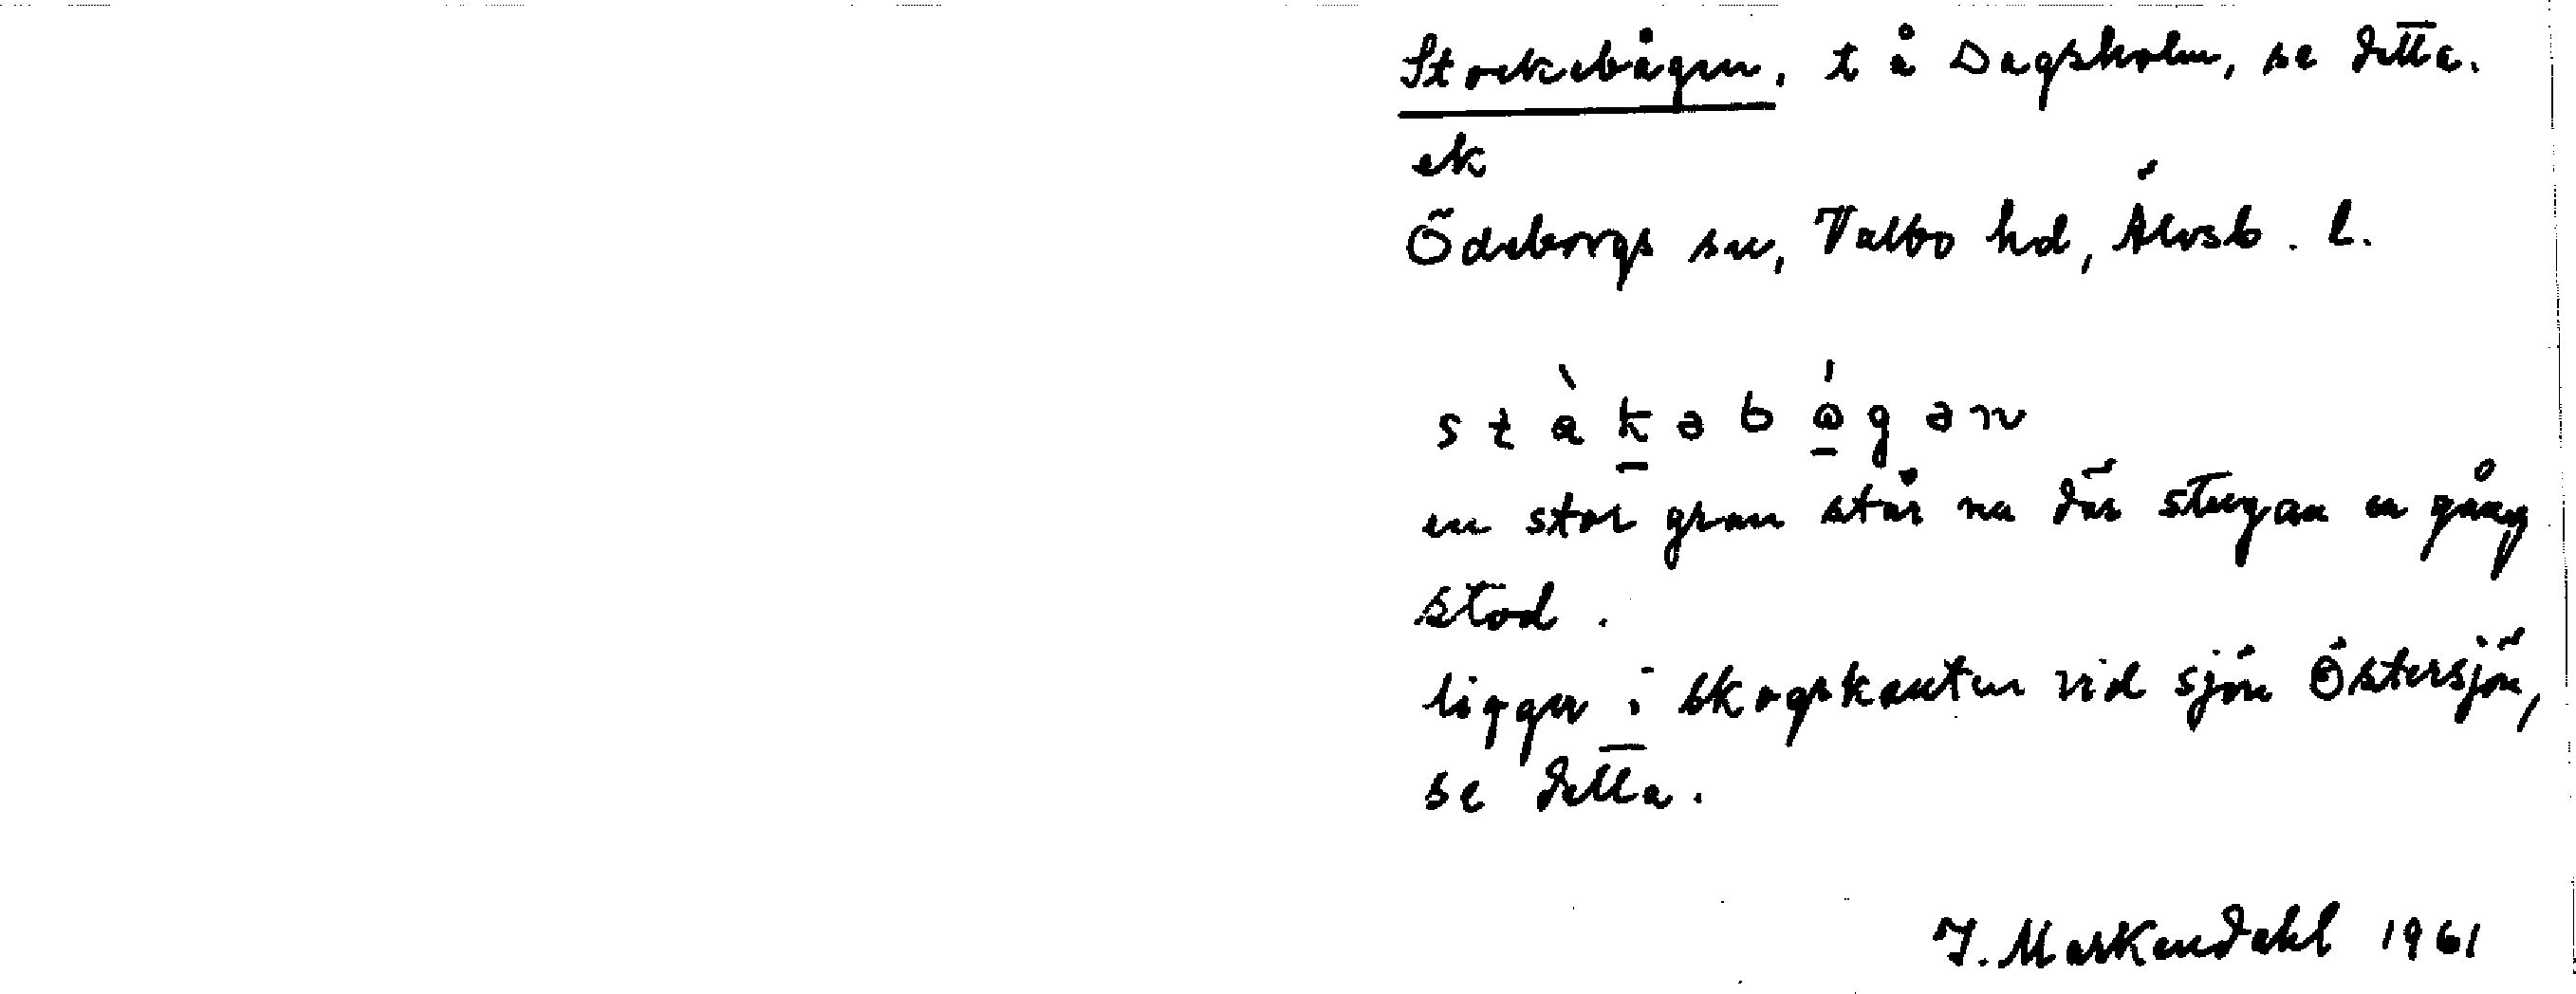 Stockebågen, t å Dagsholm, se detta.
ek
Ödeborgs sn, Valbo hd, Älvsb. l.
stàkəbɷ́gən
en stor gran står nu där stugan en gång
stod.
ligger i skogskanten vid sjön Östersjön,
se detta.
J. Markendahl 1961